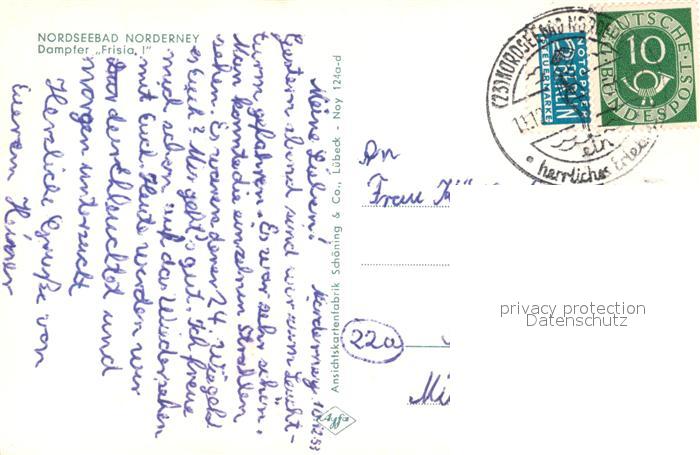 NORDSEEBAD NORDERNEY
Dampfer „Frisia I"
Norderney, 10.12.53
Meine Lieben!
Gestern abend sind wir zum Leucht-
turm gefahren. Es war sehr schön.
Man konnte die einzelnen Strahlen
sehen. Es waren deren 24. Wie geht
es Euch? Mir geht's gut. Ich freue
mich schon auf das Wiedersehen
mit Euch. Heute werden wir
durchleuchtet und
morgen untersucht
Herzliche Grüße von
Eurem Heiner
Ansichtskartenfabrik Schöning & Co., Lübeck - Noy 124a-d
Agfa
An
Frau
22a
Mü
(23) NORDSEEBAD NOR
ein
herrliches Erleb
NOTOPFER
2 BERLIN
STEUERMARKE
DEUTSCHE
BUNDESPOST
10
privacy protection
Datenschutz